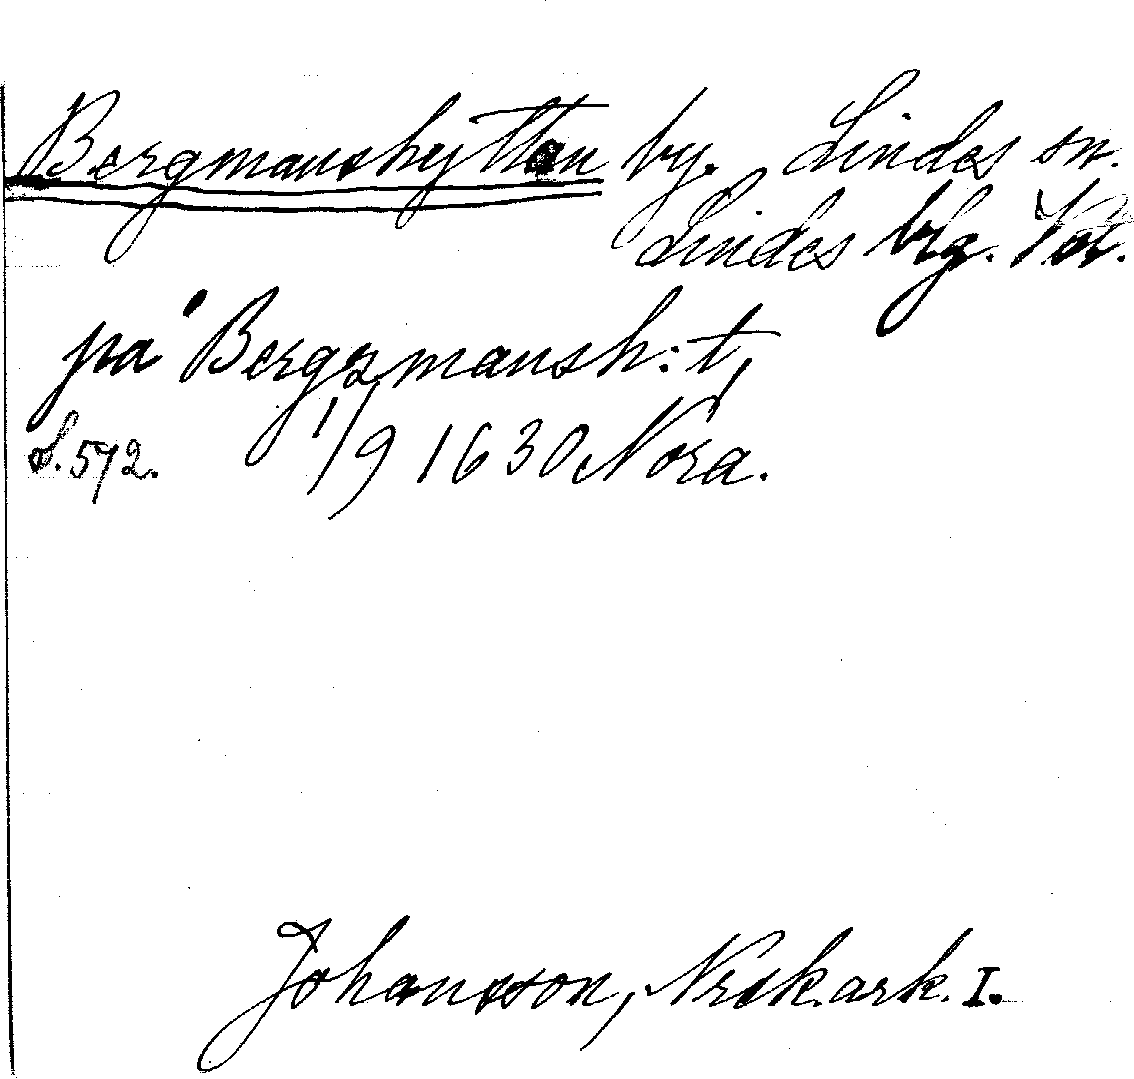 Bergmanshyttan by. Lindes sn.
Lindes bg. Vstl.
på Bergsmansh:t,
S. 572. 1/9 1630 Nora.
Johansson, Noraskog. ark. I.